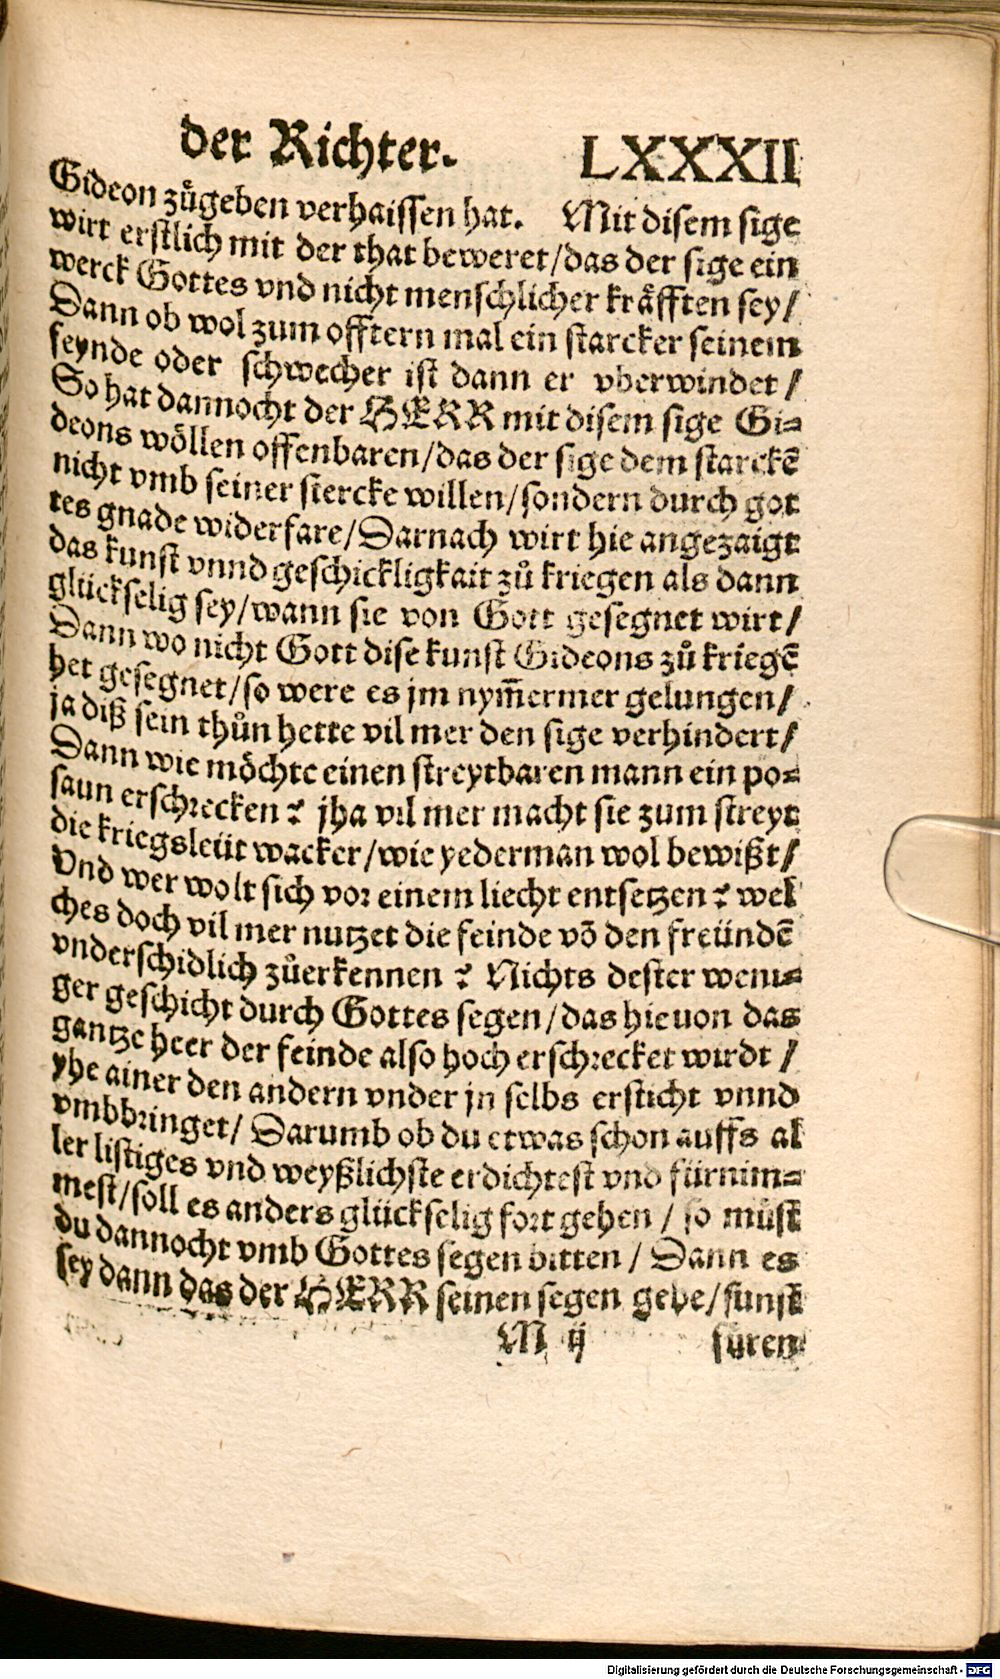 der Richter. LXXXII
Gideon zůgeben verhaissen hat. Mit disem sige
wirt erstlich mit der that beweret/das der sige ein
werck Gottes vnd nicht menschlicher kräfften sey/
Dann ob wol zum offtern mal ein starcker seinem
feynde oder schwecher ist dann er vberwindet/
So hat dannocht der HERR mit disem sige Gi⸗
deons wöllen offenbaren/das der sige dem starckē
nicht vmb seiner stercke willen/sondern durch got
tes gnade widerfare/Darnach wirt hie angezaigt
das kunst vnnd geschickligkait zů kriegen als dann
glückselig sey/wann sie von Gott gesegnet wirt/
Dann wo nicht Gott dise kunst Gideons zů kriegē
het gesegnet/so were es jm nym̄ermer gelungen/
ja diß sein thůn hette vil mer den sige verhindert/
Dann wie möchte einen streytbaren mann ein po⸗
saun erschrecken? jha vil mer macht sie zum streyt
die kriegsleüt wacker/wie yederman wol bewißt/
Vnd wer wolt sich vor einem liecht entsetzen? wel
ches doch vil mer nutzet die feinde vō den freündē
vnderschidlich zůerkennen? Nichts dester weni⸗
ger geschicht durch Gottes segen/das hieuon das
gantze heer der feinde also hoch erschrecket wirdt/
yhe ainer den andern vnder jn selbs ersticht vnnd
vmbbringet/Darumb ob du etwas schon auffs al
ler listiges vnd weyßlichste erdichtest vnd fürnim⸗
mest/soll es anders glückselig fort gehen/so můst
du dannocht vmb Gottes segen bitten/Dann es
sey dann das der HERR seinen segen gebe/sunst
M ij füren
Digitalisierung gefördert durch die Deutsche Forschungsgemeinschaft - DFG